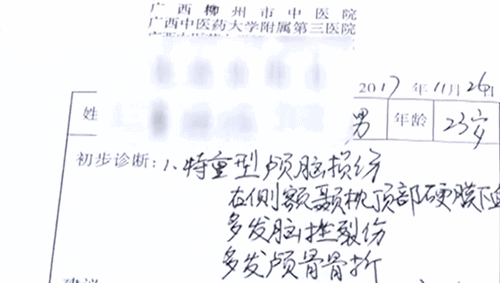 广西柳州市中医院
广西中医药大学附属第三医院
2017年11月26日
姓 男 年龄 23岁
初步诊断:1、特重型颅脑损伤
右侧额颞枕顶部硬膜下血
多发脑挫裂伤
多发颅骨骨折
建议